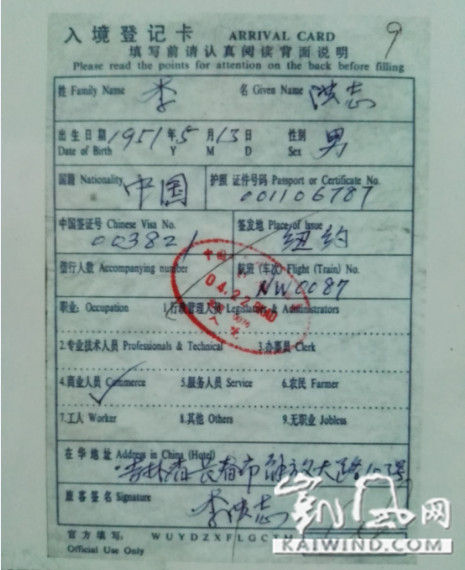 入境登记卡 ARRIVAL CARD 9
填写前请认真阅读背面说明
Please read the points for attention on the back before filling
姓 Family Name 李 名 Given Name 洪志
出生日期 1951年5月13日 性别 男
Date of Birth Y M D Sex
国籍 Nationality 中国 护照 证件号码 Passport or Certificate No.
001106787
中国签证号 Chinese Visa No. 签发地 Place of Issue
003821 纽约
偕行人数 Accompanying number 航班(车次) Flight (Train) No.
04.22 NW0087
职业: Occupation 1.行政管理人员 Legislators & Administrators
2.专业技术人员 Professionals & Technical 3.办事员 Clerk
4.商业人员 Commerce 5.服务人员 Service 6.农民 Farmer
7.工人 Worker 8.其他 Others 9.无职业 Jobless
在华地址 Address in China (Hotel)
吉林省长春市解放大路
旅客签名 Signature 李洪志
官方填写: WUYDZXFLGCTH
Official Use Only
凯风网
KAIWIND.COM